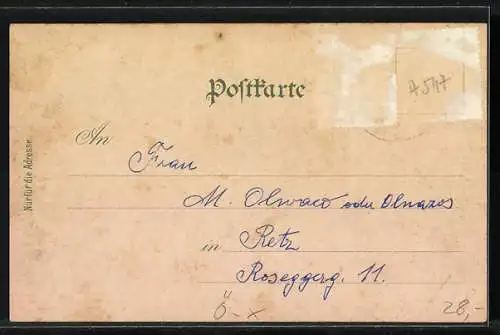 Postkarte
A 547
An
Frau
M. Olwacz oder Olnazos
in Retz
Roseggerg. 11.
Nur für die Adresse.
Ö-x
28,-